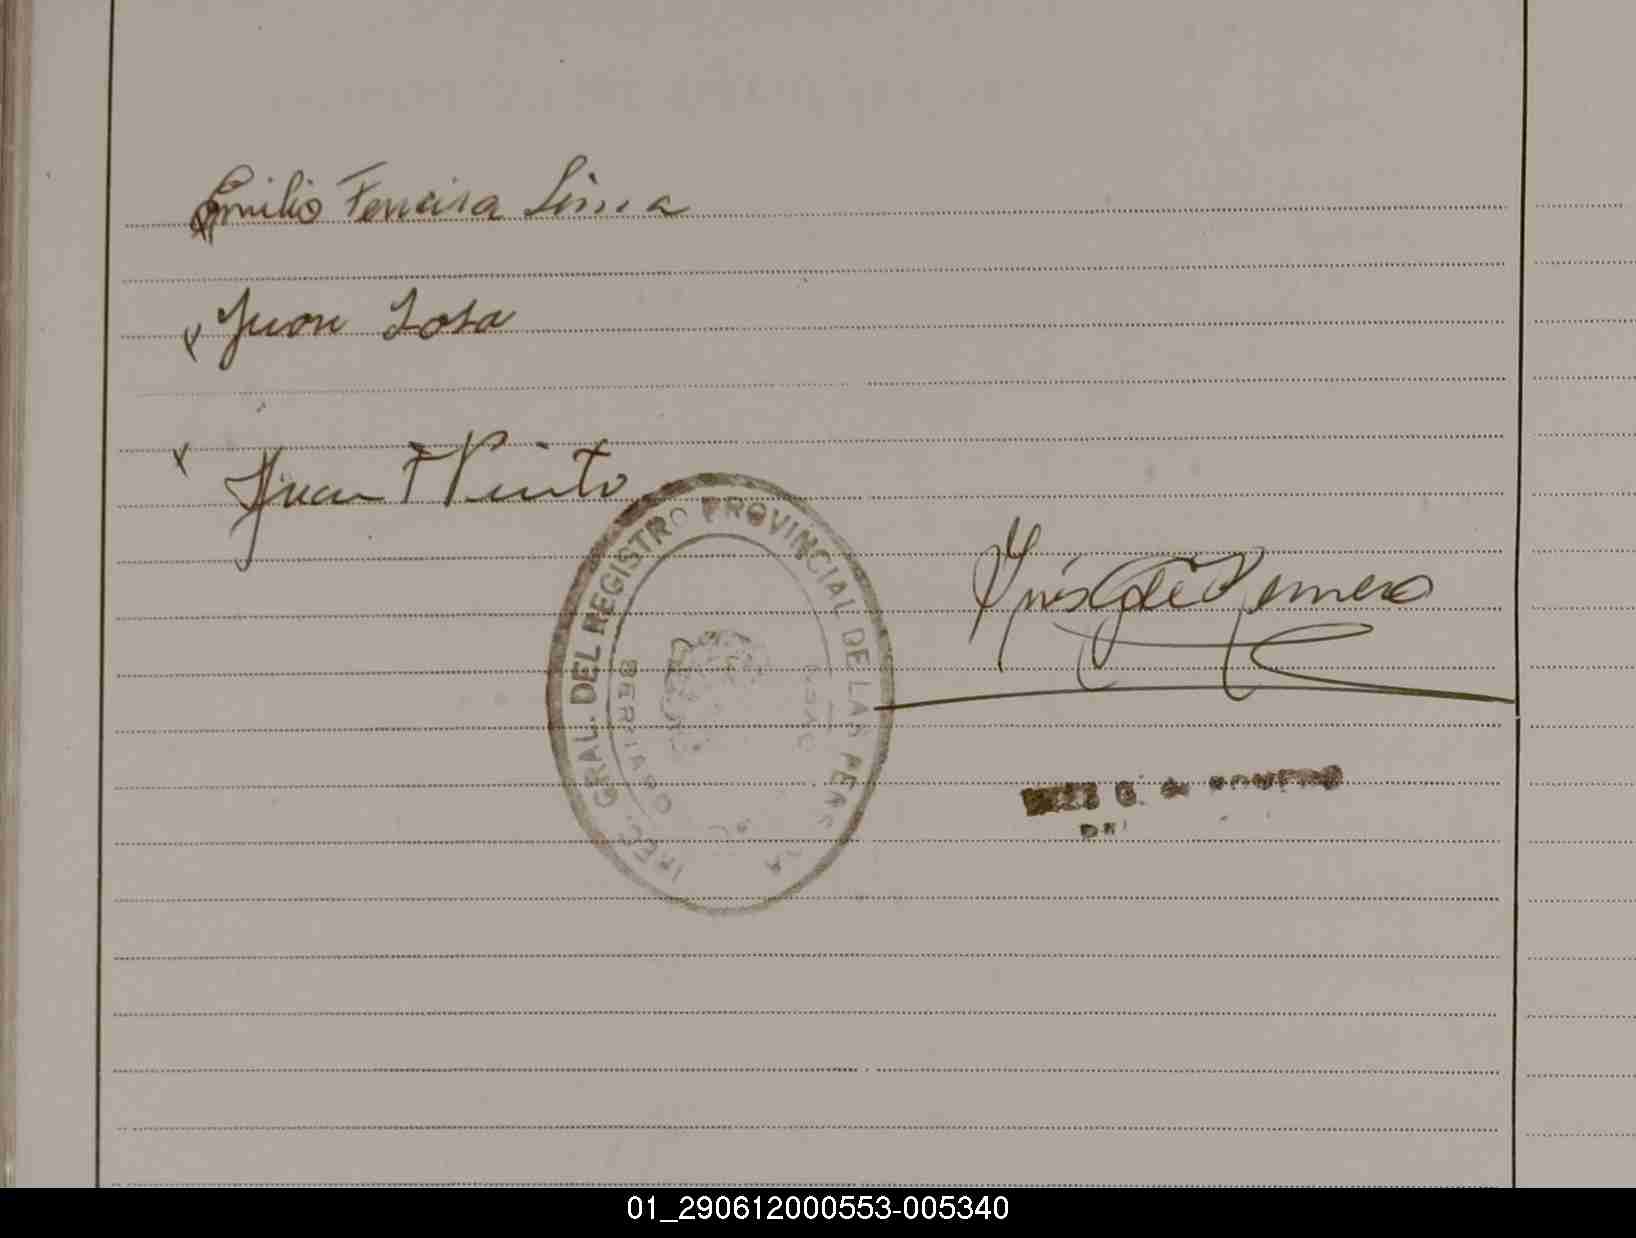 Emilio Ferreira Lima
x Juan Sosa
x Juan F Pinto
Inés G de Romero
DIREC. GRAL. DEL REGISTRO PROVINCIAL DE LAS PERSONAS
BERRIASO
INES G. de ROMERO
01_290612000553-005340